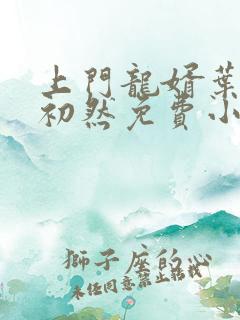 上門龍婿葉
初然免費小
獅子座的心
未任同意禁止轉載